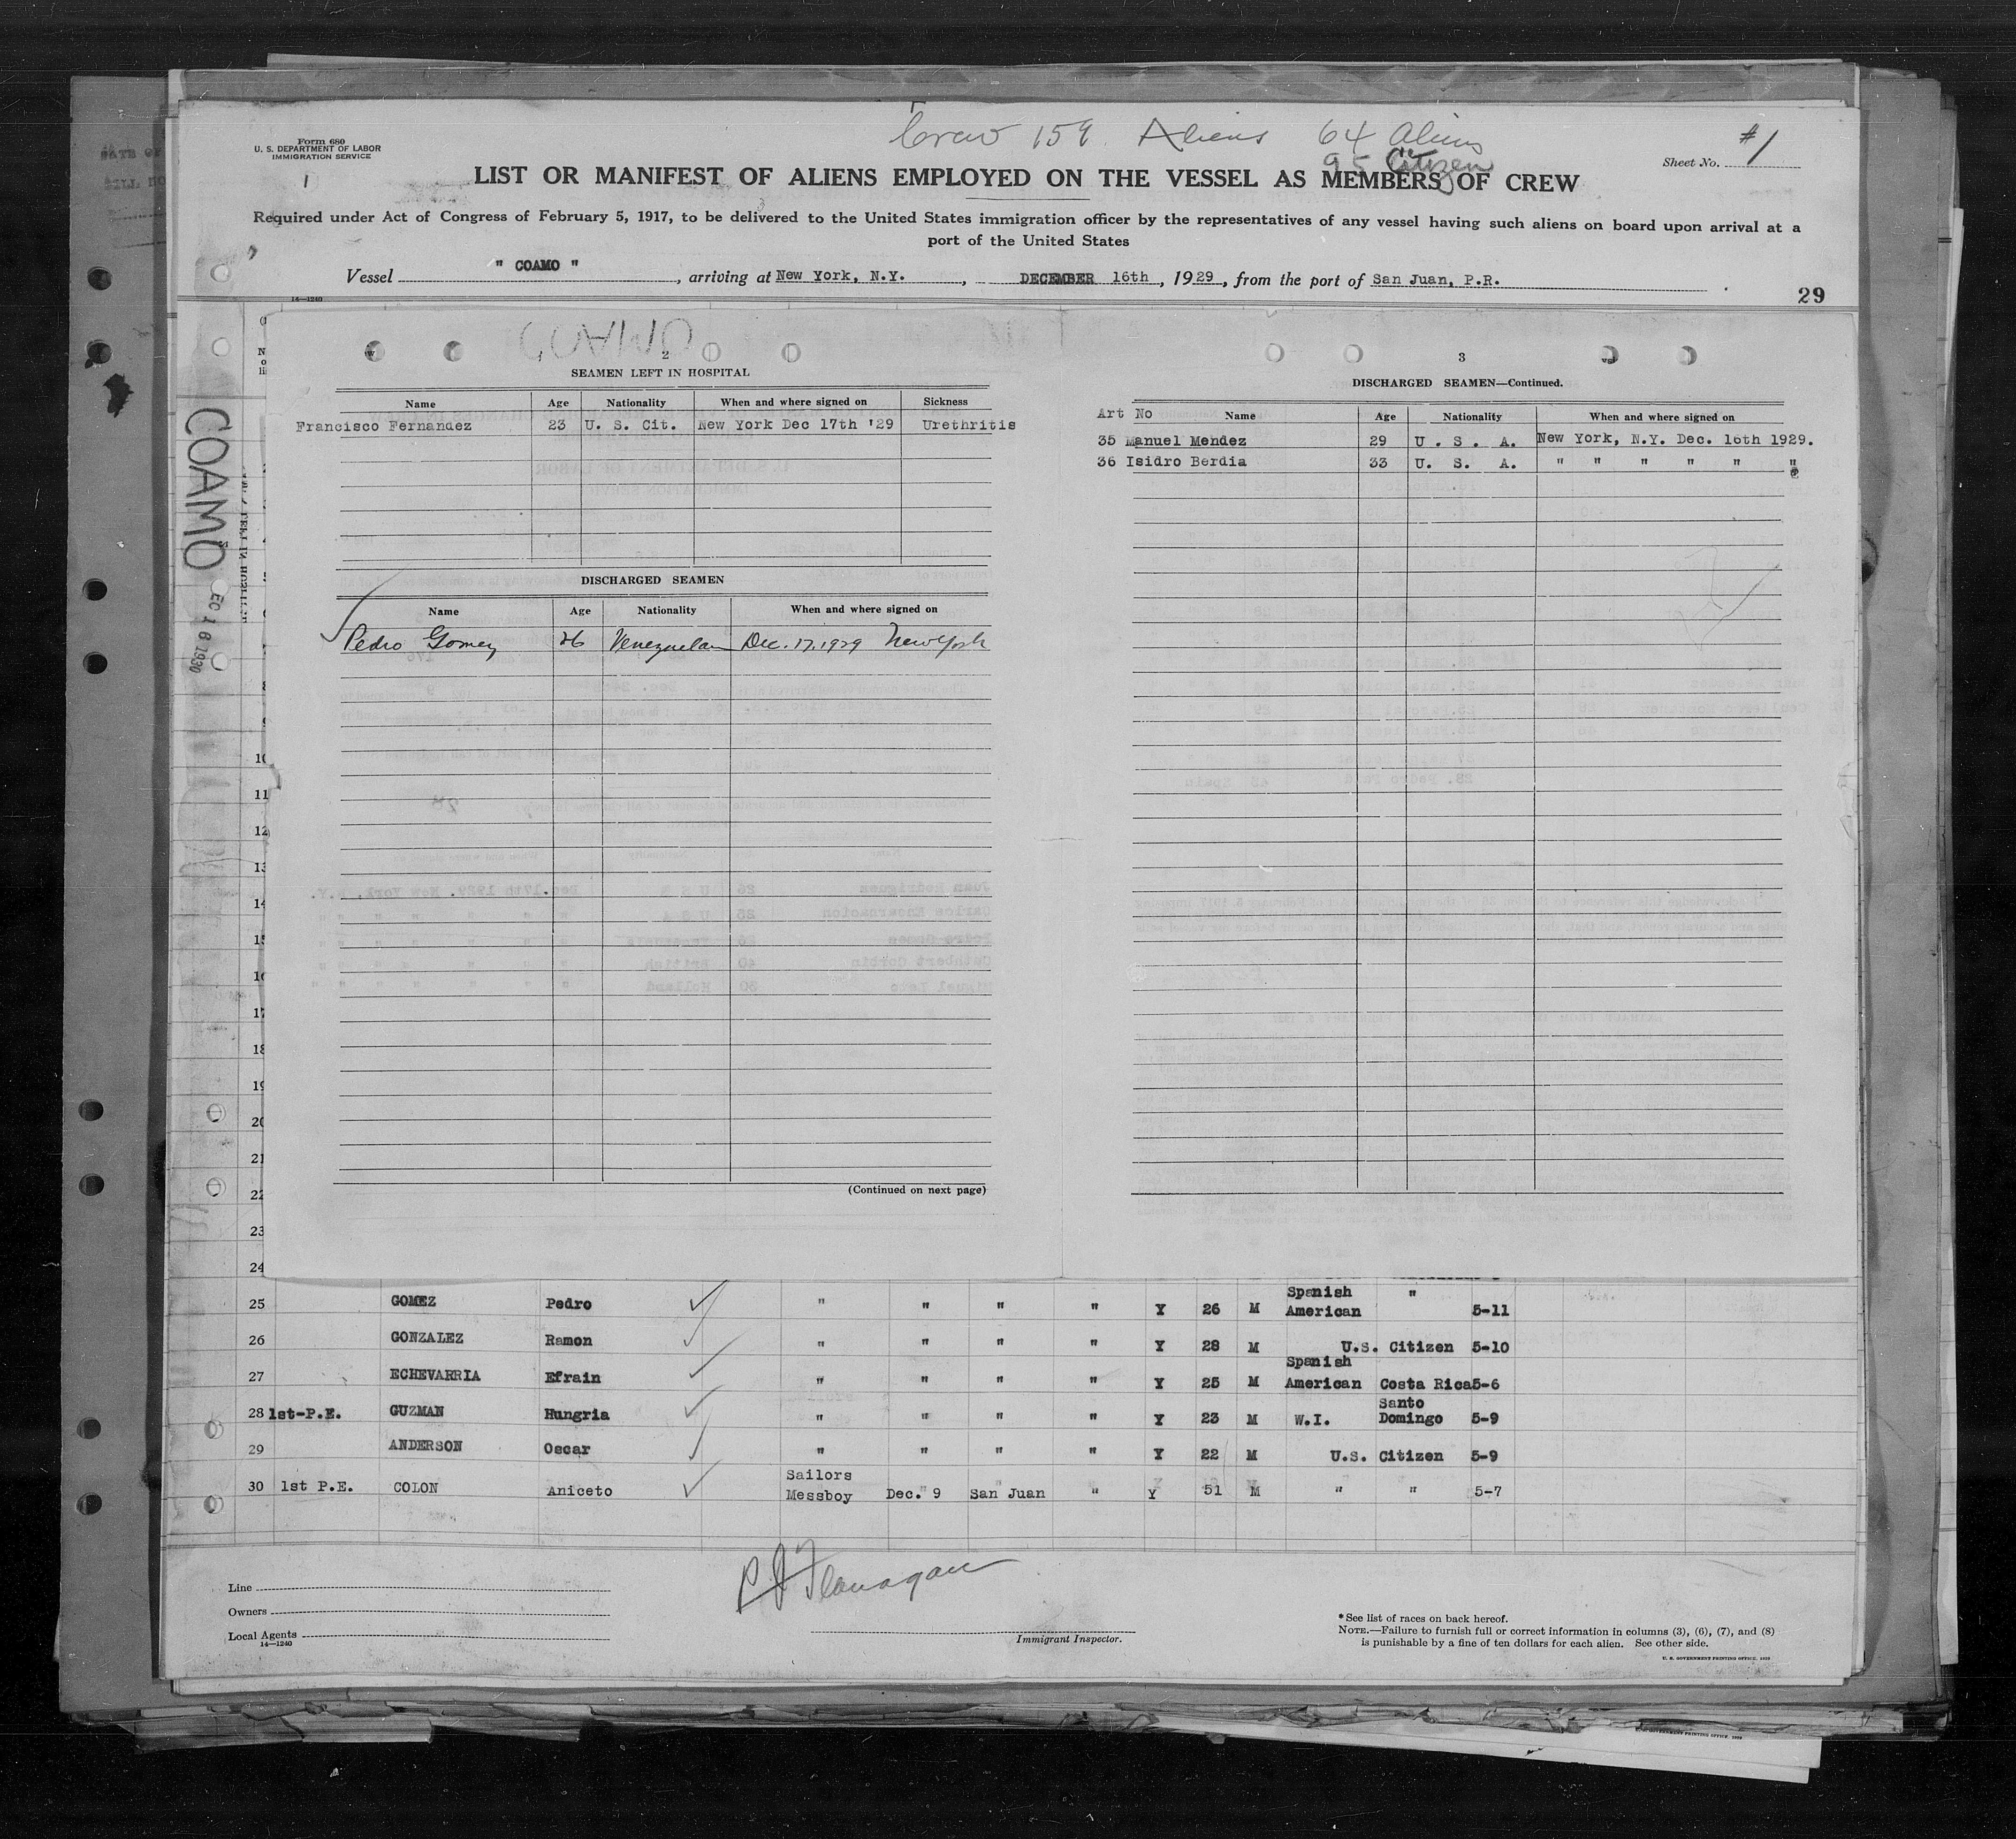 Crew 159 Aliens 64 Aliens
95 Citizen
Form 680
U. S. DEPARTMENT OF LABOR
IMMIGRATION SERVICE
1
Sheet No. #1
LIST OR MANIFEST OF ALIENS EMPLOYED ON THE VESSEL AS MEMBERS OF CREW
Required under Act of Congress of February 5, 1917, to be delivered to the United States immigration officer by the representatives of any vessel having such aliens on board upon arrival at a
port of the United States
Vessel " COAMO ", arriving at New York, N.Y., DECEMBER 16th, 1929, from the port of San Juan, P.R.
14—1240
29
COAMO
COAMO
EC 16 1930
2
SEAMEN LEFT IN HOSPITAL
Name Age Nationality When and where signed on Sickness
Francisco Fernandez 23 U. S. Cit. New York Dec 17th '29 Urethritis
DISCHARGED SEAMEN
Name Age Nationality When and where signed on
Pedro Gomez 26 Venezuelan Dec. 17, 1929 New York
(Continued on next page)
3
DISCHARGED SEAMEN—Continued.
Art No Name Age Nationality When and where signed on
35 Manuel Mendez 29 U. S. A. New York, N.Y. Dec. 16th 1929.
36 Isidro Berdia 33 U. S. A. " " " " " "
10
11
12
13
14
15
16
17
18
19
20
21
22
23
24
25 GOMEZ Pedro " " " " Y 26 M Spanish American " 5-11
26 GONZALEZ Ramon " " " " Y 28 M U.S. Citizen 5-10
27 ECHEVARRIA Efrain " " " " Y 25 M Spanish American Costa Rica 5-6
28 1st-P.E. GUZMAN Hungria " " " " Y 23 M W.I. Santo Domingo 5-9
29 ANDERSON Oscar " " " " Y 22 M U.S. Citizen 5-9
30 1st P.E. COLON Aniceto Sailors Messboy Dec. 9 San Juan " Y 51 M " " 5-7
Line
Owners
Local Agents
14—1240
P J Flanagan
Immigrant Inspector.
* See list of races on back hereof.
NOTE.—Failure to furnish full or correct information in columns (3), (6), (7), and (8)
is punishable by a fine of ten dollars for each alien. See other side.
U. S. GOVERNMENT PRINTING OFFICE, 1929